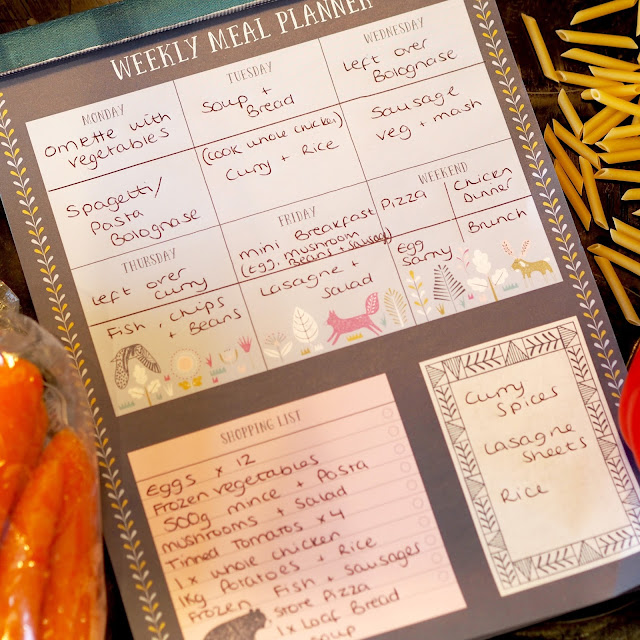 WEEKLY MEAL PLANNER
MONDAY
Omlette with
vegetables
Spagetti/
Pasta
Bolognase
TUESDAY
Soup +
Bread
(Cook whole chicken)
Curry + Rice
WEDNESDAY
Left over
Bolognase
Sausage
veg + mash
THURSDAY
Left over
curry
Fish, chips
+ Beans
FRIDAY
mini Breakfast
(egg, mushroom
+ bean + sausage)
Lasagne +
Salad
WEEKEND
Pizza
Egg
Sarny
Chicken
Dinner
Brunch
SHOPPING LIST
Eggs x 12
Frozen vegetables
500g mince + Pasta
mushrooms + Salad
Tined tomatos x4
1 x whole chicken
1kg Potatoes + Rice
Frozen Fish + Sausages
Store Pizza
1x Loaf Bread
Soup
Curry
Spices
Lasagne
Sheets
Rice